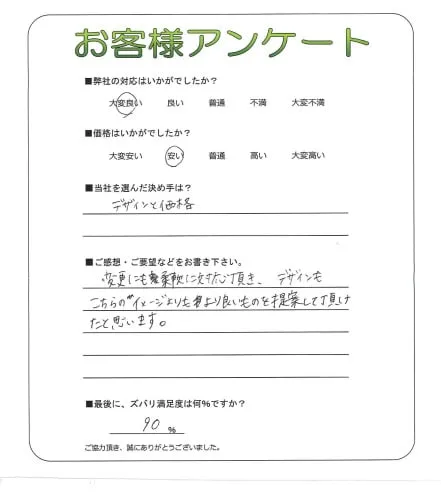 お客様アンケート
■弊社の対応はいかがでしたか？
大変良い 良い 普通 不満 大変不満
■価格はいかがでしたか？
大変安い 安い 普通 高い 大変高い
■当社を選んだ決め手は？
デザインと価格
■ご感想・ご要望などをお書き下さい。
変更にも柔軟に対応頂き、デザインも
こちらのイメージよりもより良いものを提案して頂け
たと思います。
■最後に、ズバリ満足度は何％ですか？
90 ％
ご協力頂き、誠にありがとうございました。